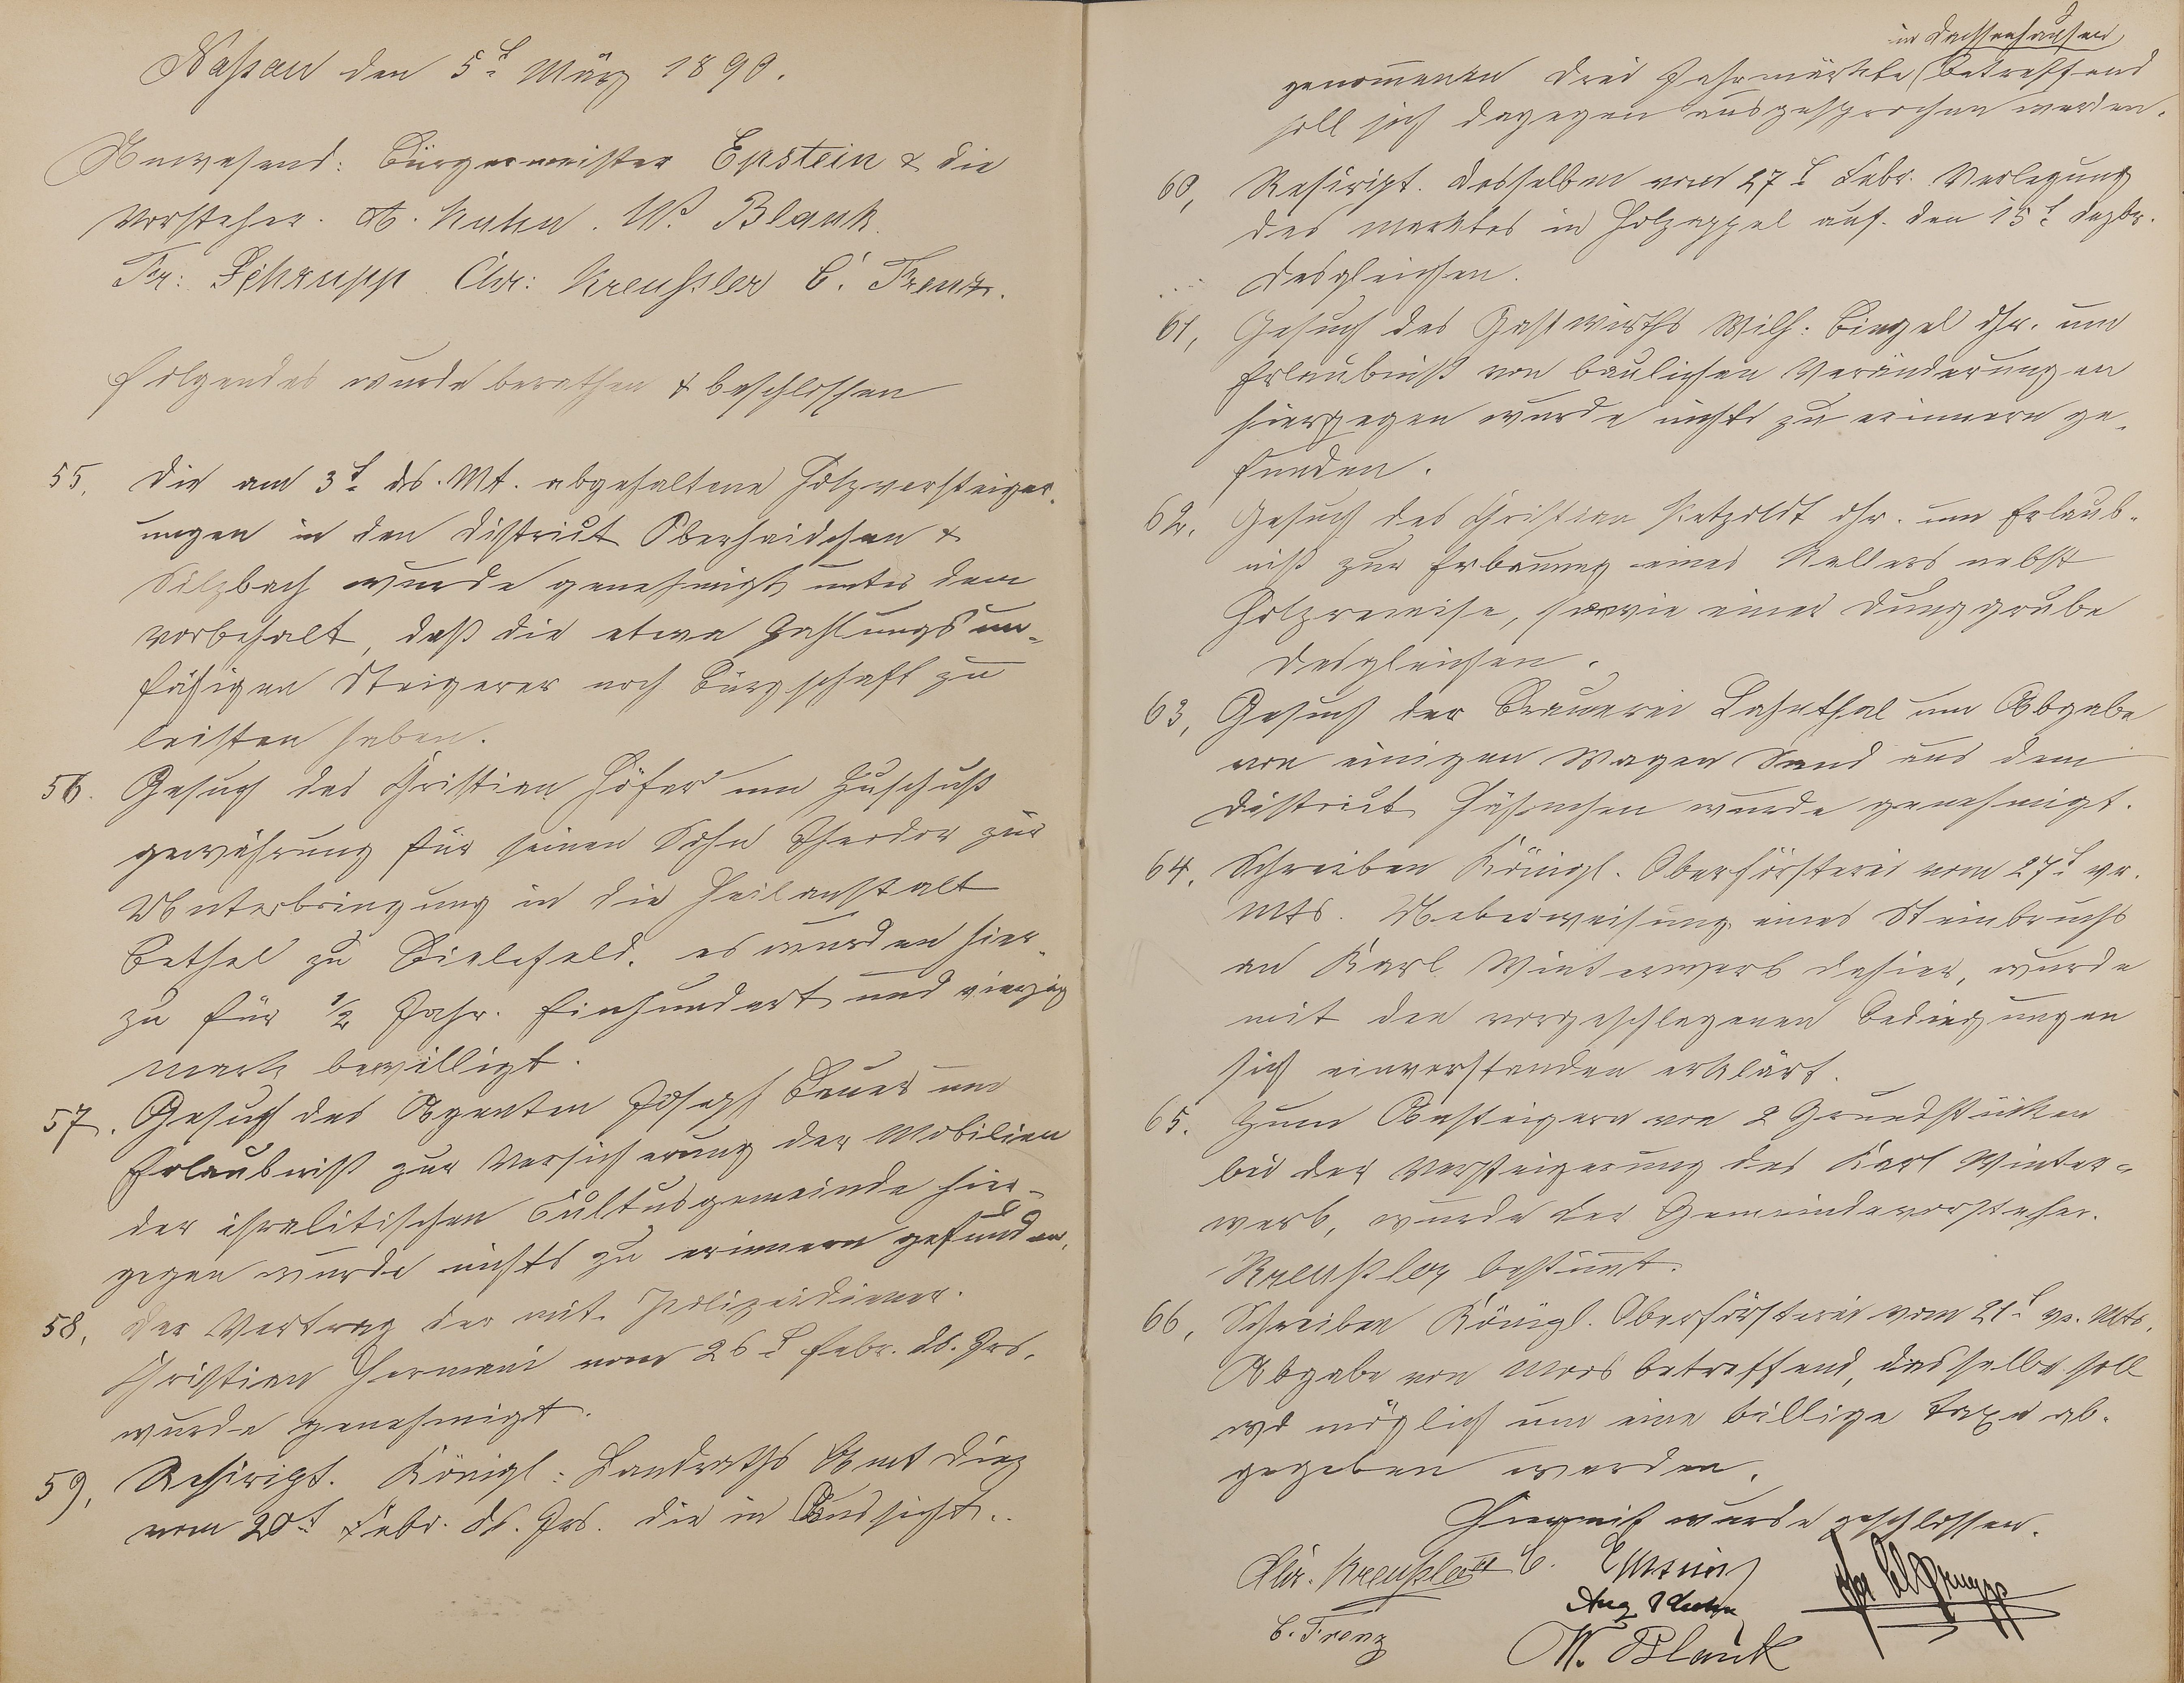 Naßau den 5t März 1890.
Anwesend: Bürgermeister Epstein & die
Vorsteher. A. Kuhn. W. Blank
Fr: Schrupp Chr: Kreußler C. Frenz.
Folgendes wurde berathen & beschlossen
55. Die am 3t ds. Mt. abgehaltene Holzversteiger-
ungen in den District Oberhaidchen &
Sulzbach wurde genehmigt unter dem
Vorbehalt, daß die etwa Zahlungsun-
fähigen Steigerer noch Bürgschaft zu
leisten haben.
56. Gesuch des Christian Höfer um Zuschuß
gewährung für seinen Sohn Theodor zur
Unterbringung in die Heilanstalt
Bethel zu Bielefeld. es wurden hier-
zu für 1/2 Jahr. Einhundert und vierzig
Mark bewilligt.
57. Gesuch des Agenten Joseph Bauer um
Erlaubniß zur Versicherung der Mobilien
der isralitischen Cultusgemeinde hier-
gegen wurde nichts zu erinnern gefunden.
58. Der Vertrag der mit Polizeidiener.
Christian Hermani vom 26t Febr. ds. Jrs.
wurde genehmigt.
59, Rescript. Königl: Landraths Amt Diez
vom 20t Febr. ds. Jrs. die in Aussicht..
in Dachsenhausen
genommenen drei Jahrmärkte betreffend
soll sich dagegen ausgesprochen werden.
60, Rescript. desselben vom 27t Febr. Verlegung
des Marktes in Holzappel auf den 15t Dezbr.
desgleichen.
61, Gesuch des Gastwirths Wilh: Bingel dhr. um
Erlaubniß von baulichen Veränderungen
hiergegen wurde nichts zu erinnern ge-
funden.
62. Gesuch des Christian Petzoldt dhr. um Erlaub-
niß zur Erbauung eines Kellers nebst
Holzremise, sowie einer Dunggrube
desgleichen.
63, Gesuch der Brauerei Lahnthal um Abgabe
von einigen Wagen Sand aus dem
District wurde genehmigt.
64. Schreiben Königl. Oberförsterei vom 27t vr.
Mts. Ueberweisung eines Steinbruchs
an Karl Winterwerb dahier, wurde
mit den vorgeschlagenen Bedingungen
sich einverstanden erklärt.
65. Zum Ansteigern von 2 Grundstücken
bei der Versteigerung des Karl Winter-
werb, wurde der Gemeindevorsteher.
Kreußler bestimt.
66, Schreiben Königl. Oberförsterei vom 21t vr. Mts.
Abgabe von Moos betreffend, dasselbe soll
wo möglich um eine billige Taxe ab-
gegeben werden.
Hiermit wurde geschlossen.
Chr. Kreußler II C. Epstein Fr Schrupp
Aug Kuhn
C. Frenz
W. Blank